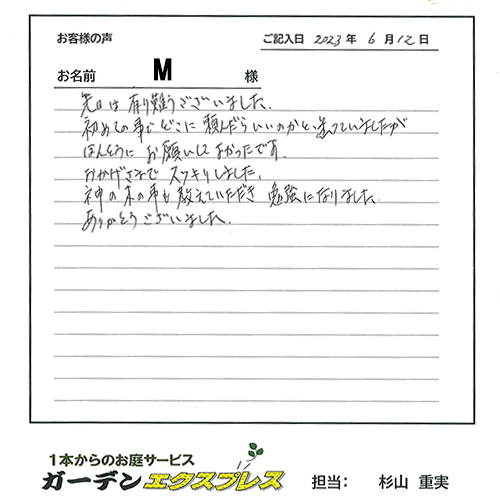 お客様の声
ご記入日 2023 年 6 月 12 日
お名前 M 様
先日は有り難うございました.
初めての事でどこに頼んだらいいのかと迷っていましたが
ほんとうに お願いしてよかったです.
おかげさまで スッキリしました.
神の木の事も教えていただき 勉強になりました.
ありがとうございました.
1本からのお庭サービス
ガーデンエクスプレス 担当: 杉山 重実